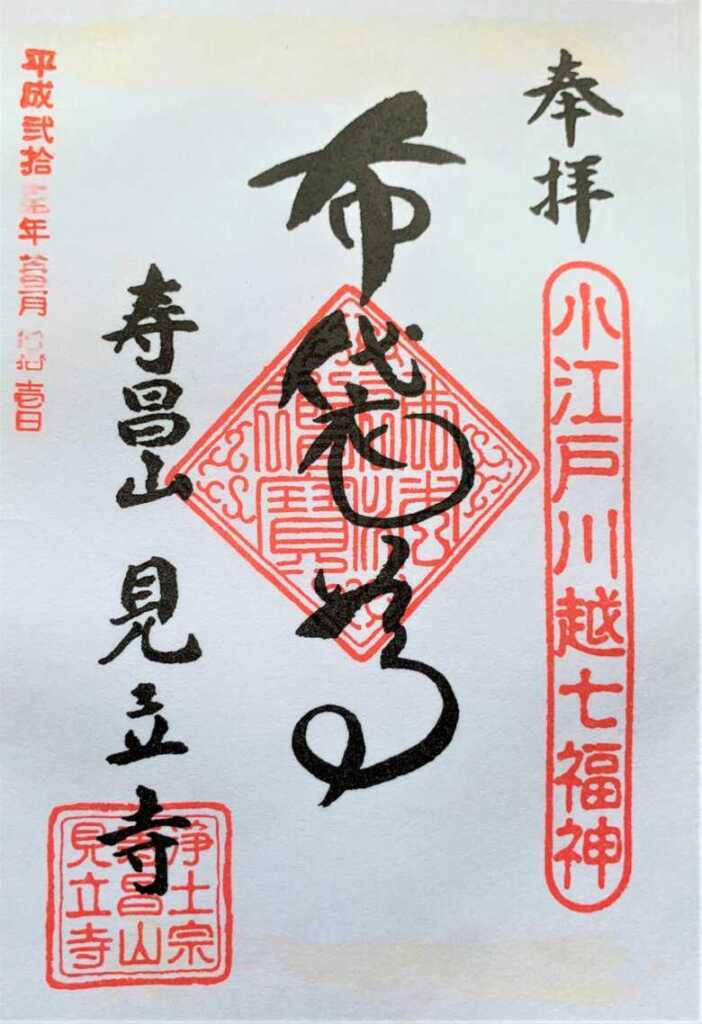 奉拝
小江戸川越七福神
布袋尊
佛法僧寳
寿昌山 見立寺
浄土宗
寿昌山
見立寺
平成弐拾
年
月
壱日